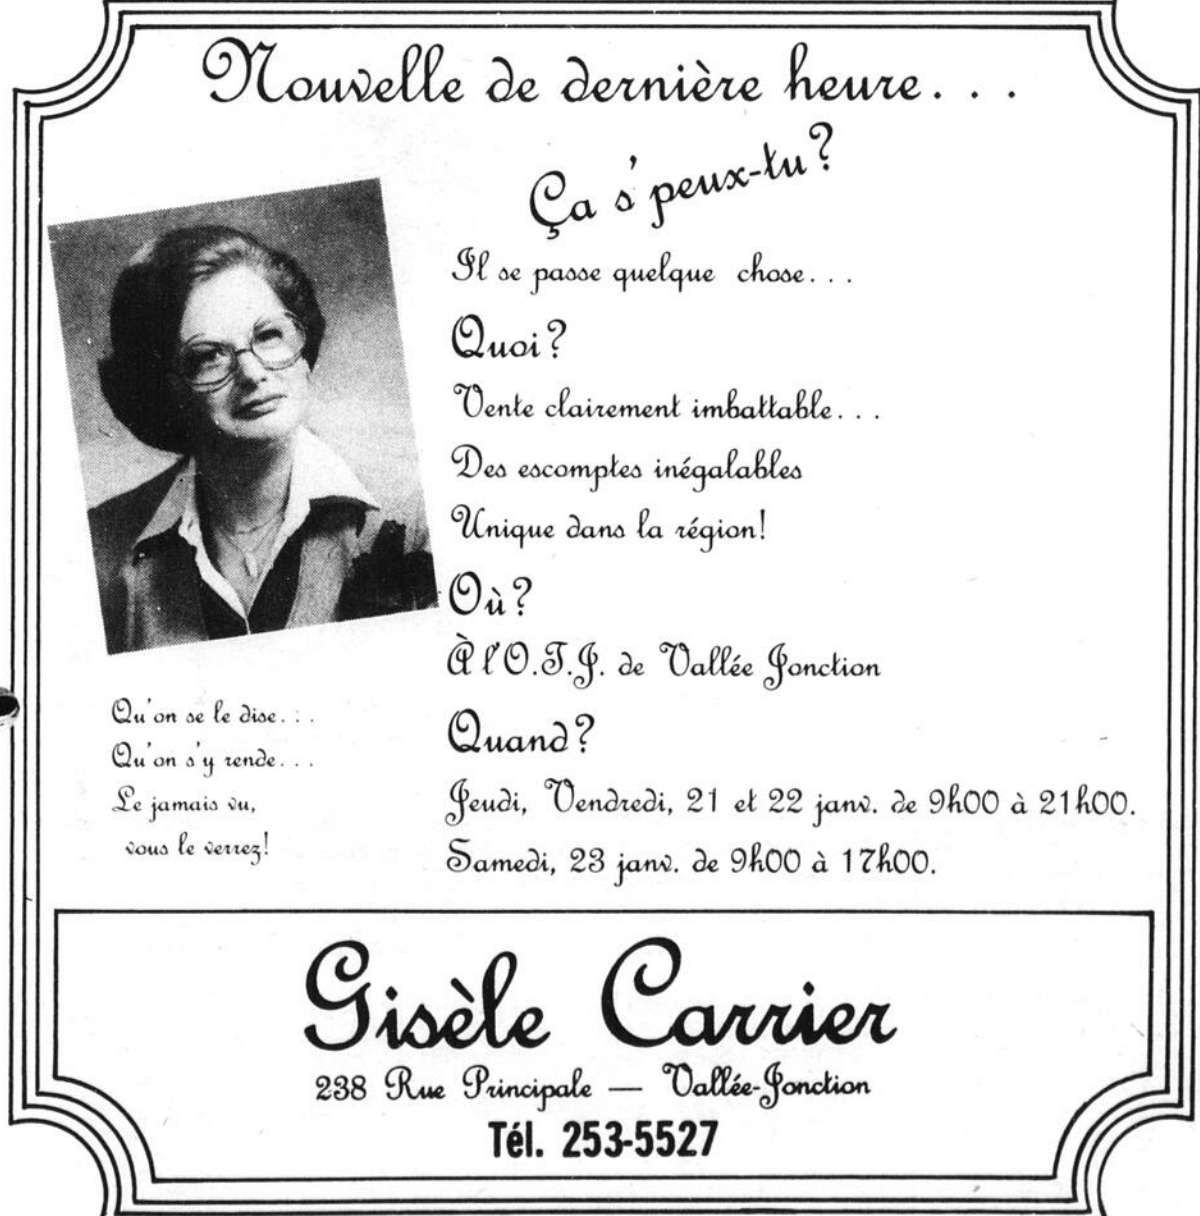 Nouvelle de dernière heure. . .
Ça s'peux-tu?
Il se passe quelque chose. . .
Quoi?
Vente clairement imbattable. . .
Des escomptes inégalables
Unique dans la région!
Où?
À l'O.T.J. de Vallée Jonction
Quand?
Jeudi, Vendredi, 21 et 22 janv. de 9h00 à 21h00.
Samedi, 23 janv. de 9h00 à 17h00.
Qu'on se le dise. . .
Qu'on s'y rende. . .
Le jamais vu,
vous le verrez!
Gisèle Carrier
238 Rue Principale — Vallée-Jonction
Tél. 253-5527